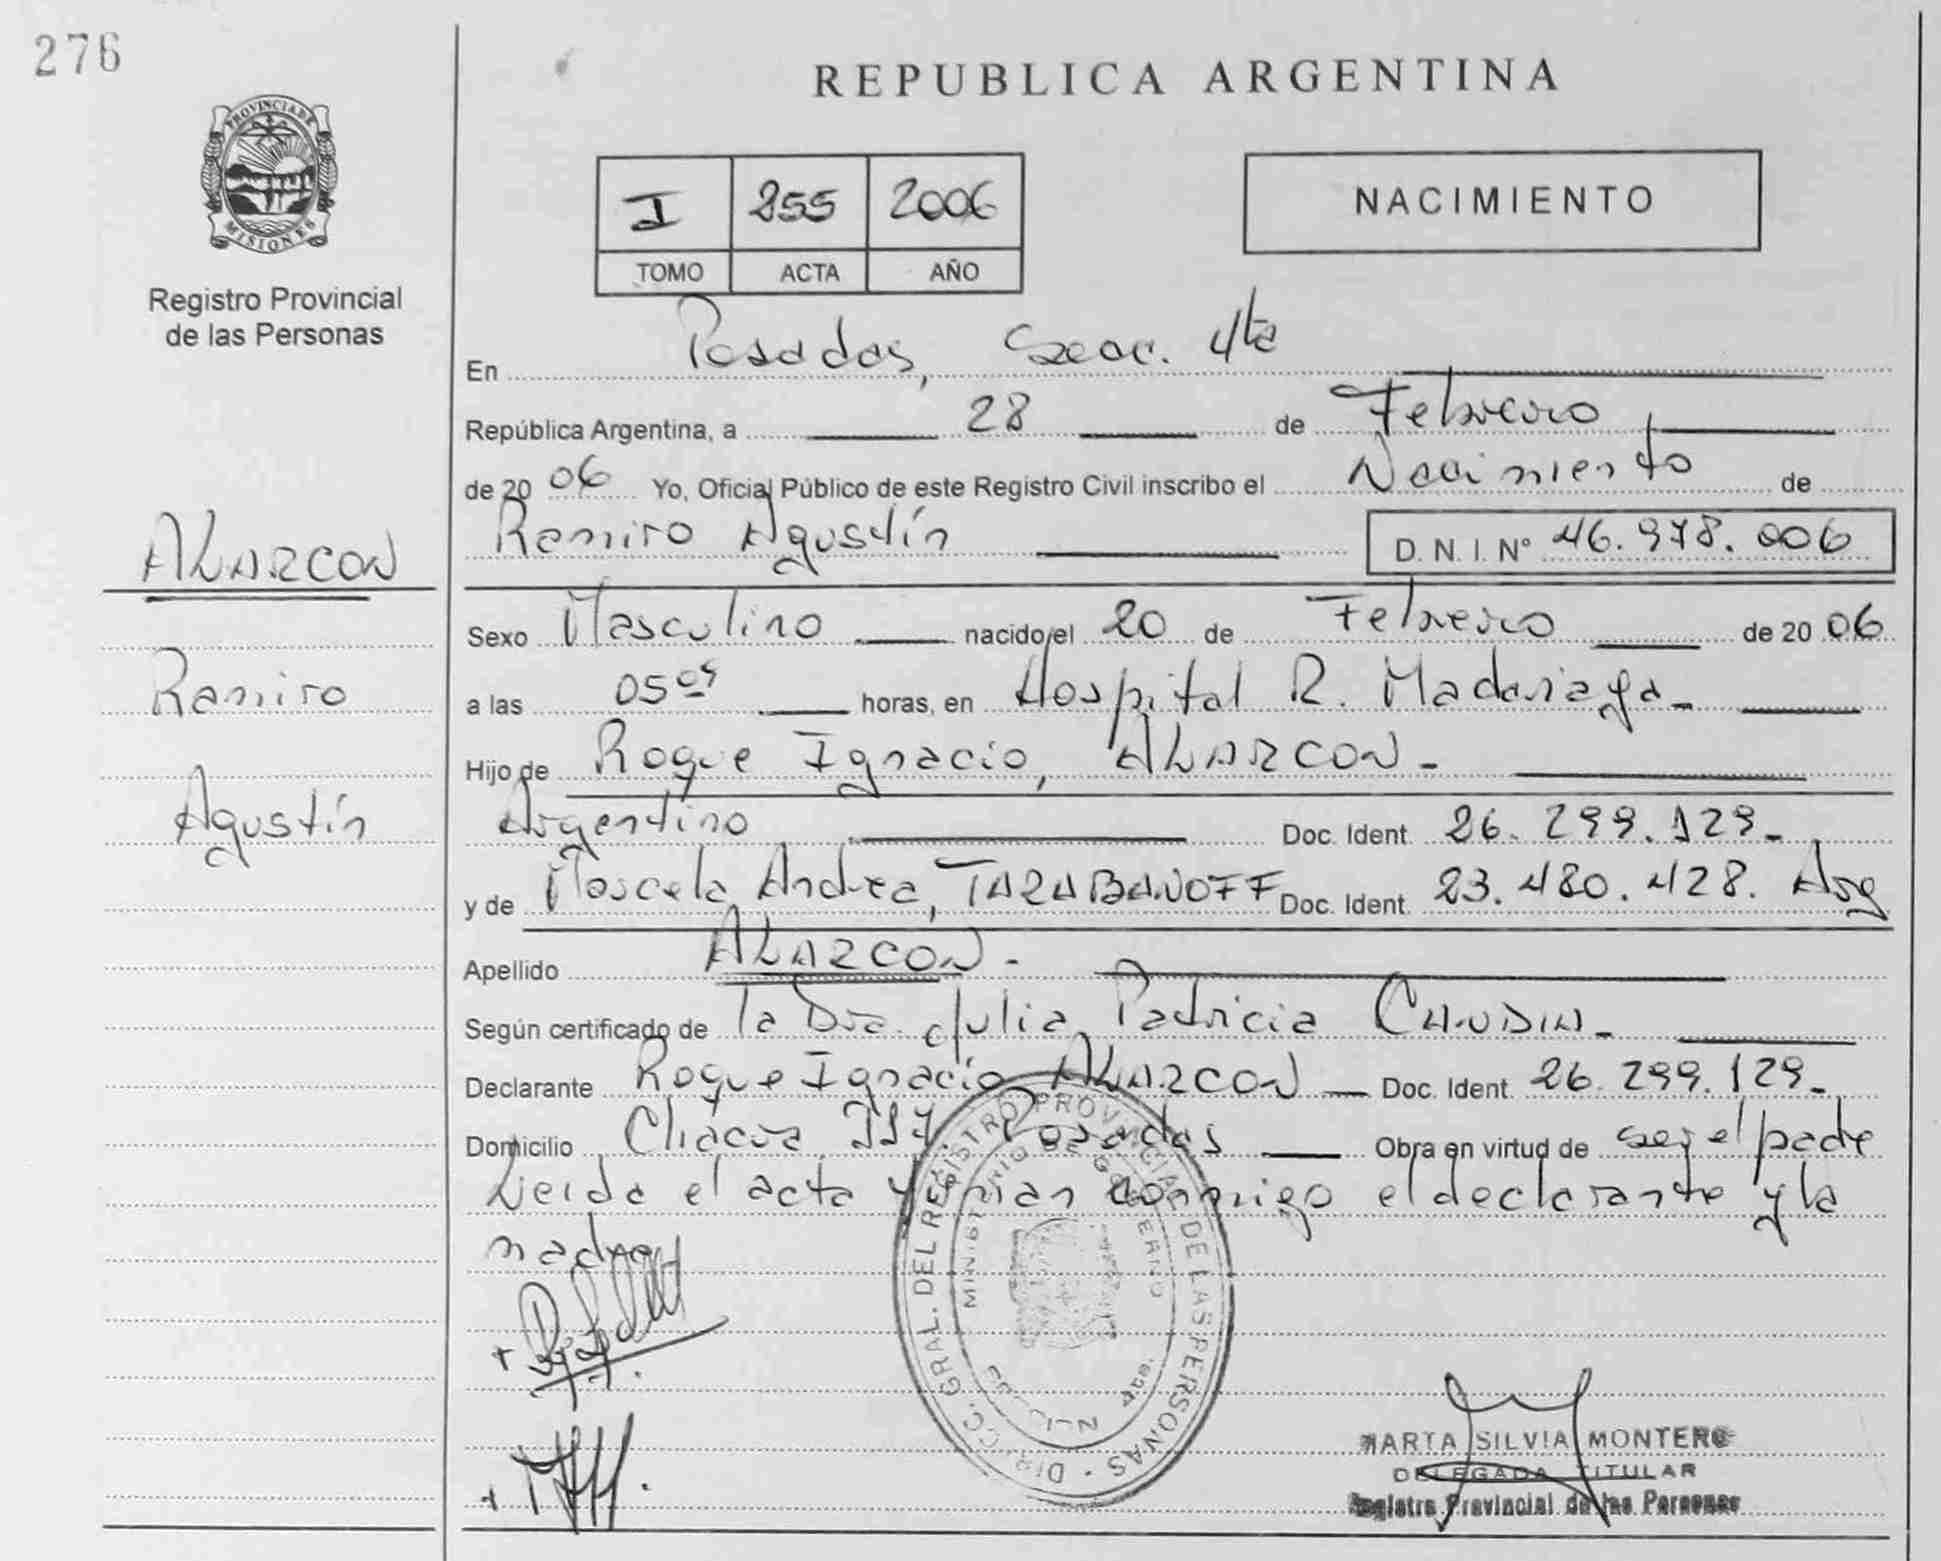 276
REPUBLICA ARGENTINA
PROVINCIA DE
MISIONES
Registro Provincial
de las Personas
I 255 2006
TOMO ACTA AÑO
NACIMIENTO
En Posadas, Secc. 4ta
República Argentina, a 28 de Febrero
de 2006 Yo, Oficial Público de este Registro Civil inscribo el Nacimiento de
Ramiro Agustín D.N.I. Nº 46.978.006
ALARCON
Ramiro
Agustín
Sexo Masculino nacido el 20 de Febrero de 2006
a las 05 horas, en Hospital R. Madariaga-
Hijo de Roque Ignacio, ALARCON-
Argentino Doc. Ident. 26.299.129-
y de Marcela Andrea, TARABANOFF Doc. Ident. 23.480.428. Arg
Apellido ALARCON-
Según certificado de la Dra. Julia Patricia
Declarante Roque Ignacio ALARCON Doc. Ident. 26.299.129-
Domicilio Posadas Obra en virtud de ser el padre
Leida el acta y firman conmigo el declarante y la
madre
DIRECC. GRAL. DEL REGISTRO PROVINCIAL DE LAS PERSONAS
MINISTERIO DE GOBIERNO
MARTA SILVIA MONTERO
DELEGADA TITULAR
Registro Provincial de las Personas